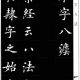 字八法
經云八法
隸字之始